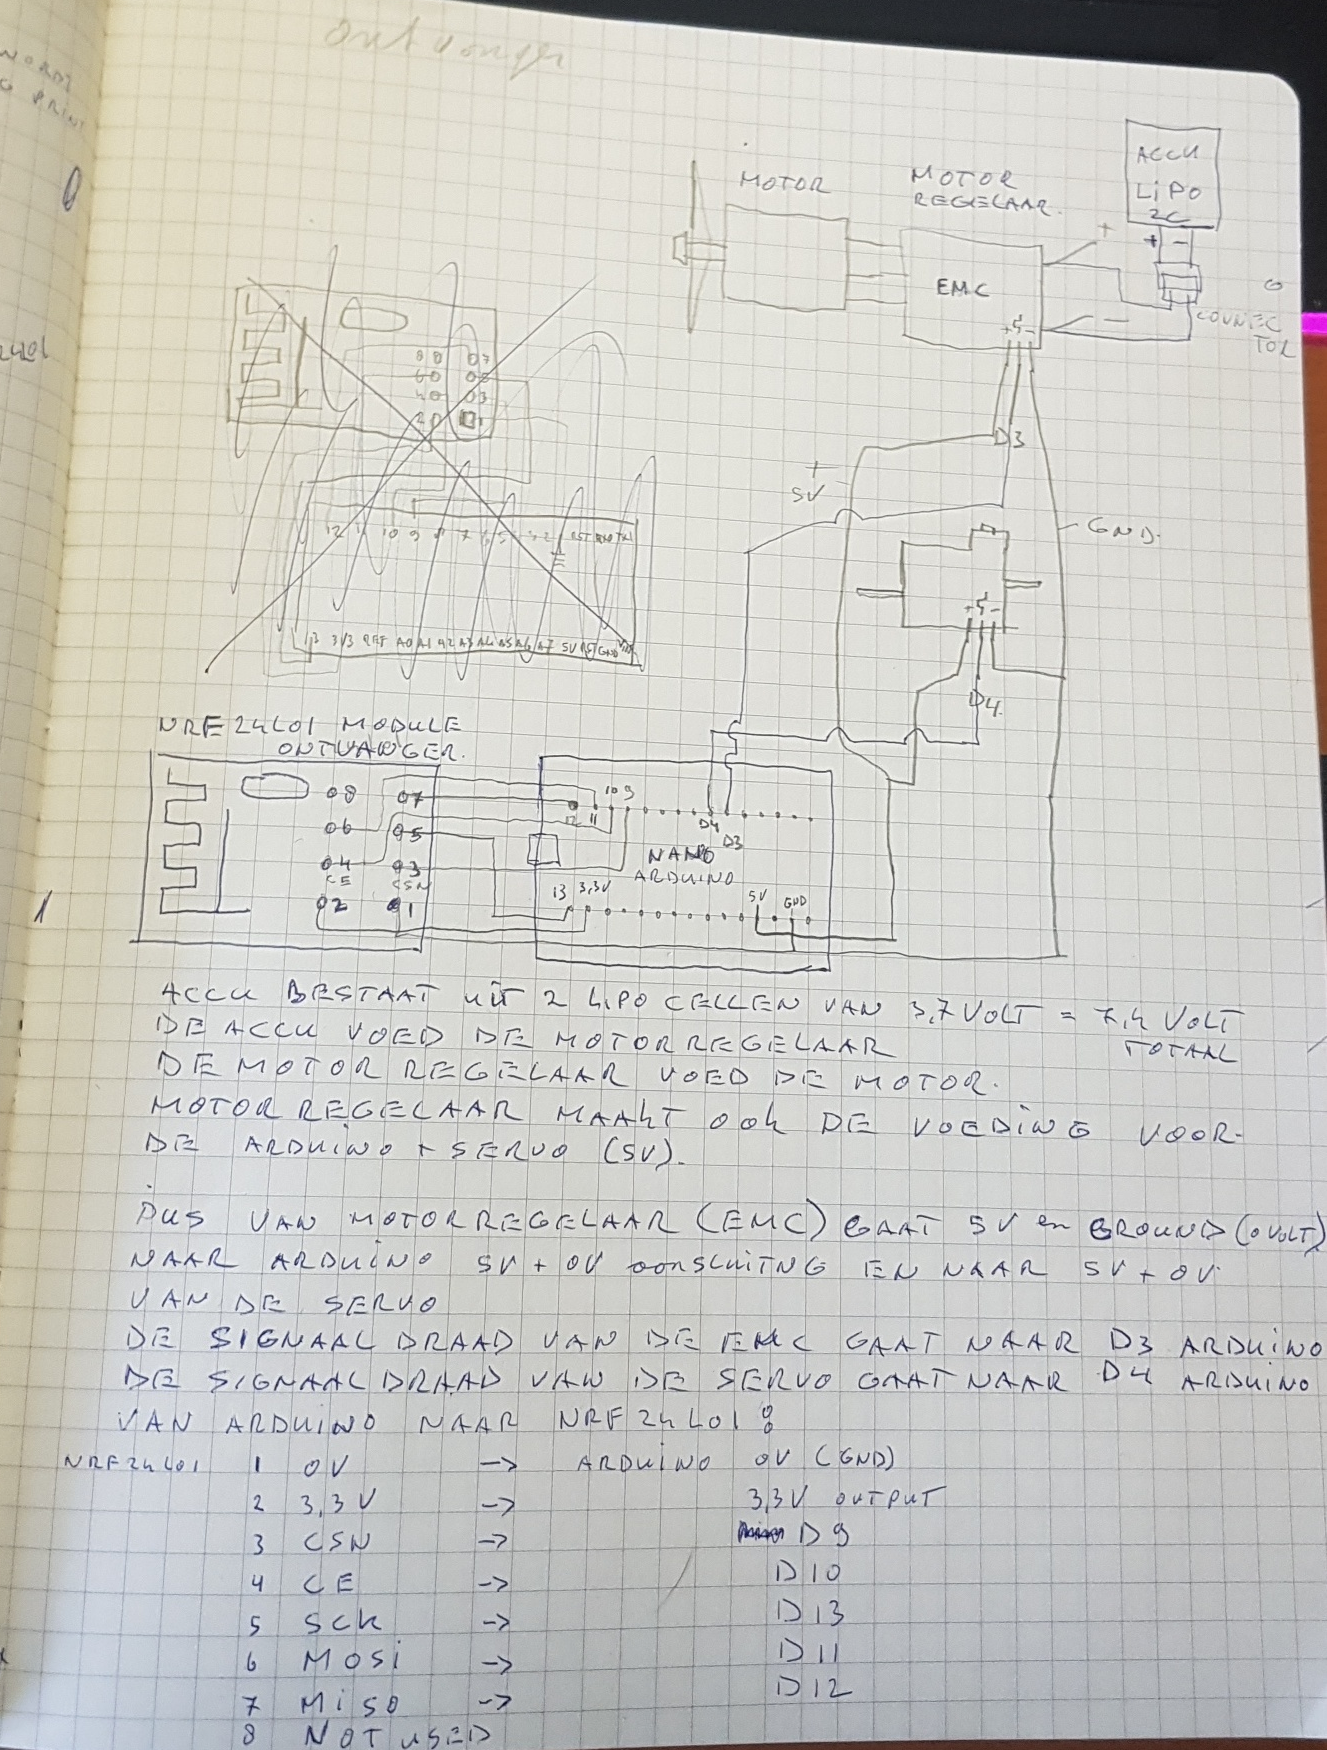 ontvanger
MOTOR
MOTOR
REGELAAR.
ACCU
LiPO
2C
+ -
+
EMC
+S-
-
CONNEC
TOR
D3
+
5V
GND.
+S-
D4
8 0 0 7
6 0
4 0 0 3
2 0 1
12 11 10 9 8 7 6 5 4 3 2 RST RX0 TX1
13 3V3 REF A0 A1 A2 A3 A4 A5 A6 A7 5V RST GND VIN
NRF24L01 MODULE
ONTVANGER.
08 07
06 05
04 03
CE CSN
02 01
12 11 10 9
D4 D3
NANO
ARDUINO
13 3,3V 5V GND
ACCU BESTAAT UIT 2 LiPO CELLEN VAN 3,7 VOLT = 7,4 VOLT
TOTAAL
DE ACCU VOED DE MOTORREGELAAR
DE MOTOR REGELAAR VOED DE MOTOR.
MOTOR REGELAAR MAAKT OOK DE VOEDING VOOR
DE ARDUINO + SERVO (5V).
DUS VAN MOTORREGELAAR (EMC) GAAT 5V en GROUND (0 VOLT)
NAAR ARDUINO 5V + 0V aansluiTNG EN NAAR 5V + 0V
VAN DE SERVO
DE SIGNAAL DRAAD VAN DE EMC GAAT NAAR D3 ARDUINO
DE SIGNAAL DRAAD VAN DE SERVO GAAT NAAR D4 ARDUINO
VAN ARDUINO NAAR NRF24L01:
NRF24L01 1 0V -> ARDUINO 0V (GND)
2 3,3V -> 3,3V OUTPUT
3 CSN -> D9
4 CE -> D10
5 SCK -> D13
6 MOSi -> D11
7 MiSO -> D12
8 NOT USED